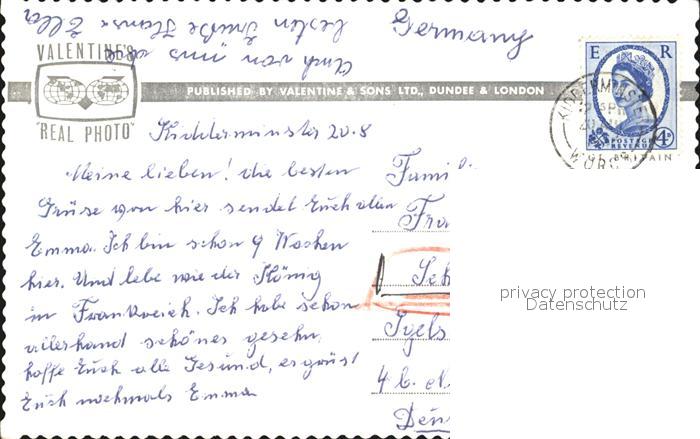 Auch von uns die
besten Grüße Hans u Ella
Germany
VALENTINE'S
"REAL PHOTO"
PUBLISHED BY VALENTINE & SONS LTD., DUNDEE & LONDON
E R
POSTAGE
REVENUE
4D
KIDDERMINSTER
WORCS
BRITAIN
Kidderminster 20.8
Meine lieben! die besten
Grüse von hier sendet Euch allen
Emma. Ich bin schon 9 Wochen
hier. Und lebe wie der König
in Frankreich. Ich habe schon
allerhand schönes gesehn,
hoffe Euch alle Gesund, es grüst
Euch nochmals Emma
Famil
Fra
Sch
Igels
4 b. N
Deu
privacy protection
Datenschutz